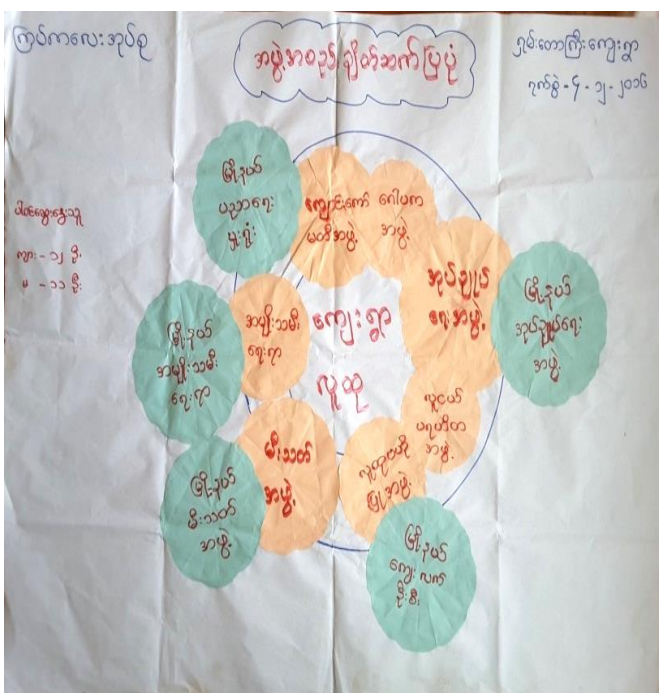 ကြပ်ကလေးအုပ်စု
အဖွဲ့အစည်းချိတ်ဆက်ပြပုံ
ရှမ်းတောကြီးကျေးရွာ
ရက်စွဲ - ၄ - ၁၂ - ၂၀၁၆
ပါဝင်ဆွေးနွေးသူ
ကျား - ၁၂ ဦး
မ - ၁၁ ဦး
မြို့နယ်
ပညာရေး
မှူးရုံး
ကျောင်းကော်
မတီအဖွဲ့
ဂေါပက
အဖွဲ့
အုပ်ချုပ်
ရေးအဖွဲ့
မြို့နယ်
အုပ်ချုပ်ရေး
အဖွဲ့
မြို့နယ်
အမျိုးသမီး
ရေးရာ
အမျိုးသမီး
ရေးရာ
ကျေးရွာ
လူထု
လူငယ်
ပရဟိတ
အဖွဲ့
မြို့နယ်
မီးသတ်
အဖွဲ့
မီးသတ်
အဖွဲ့
လူထုဗဟို
ပြုအဖွဲ့
မြို့နယ်
ကျေးလက်
ဦးစီး